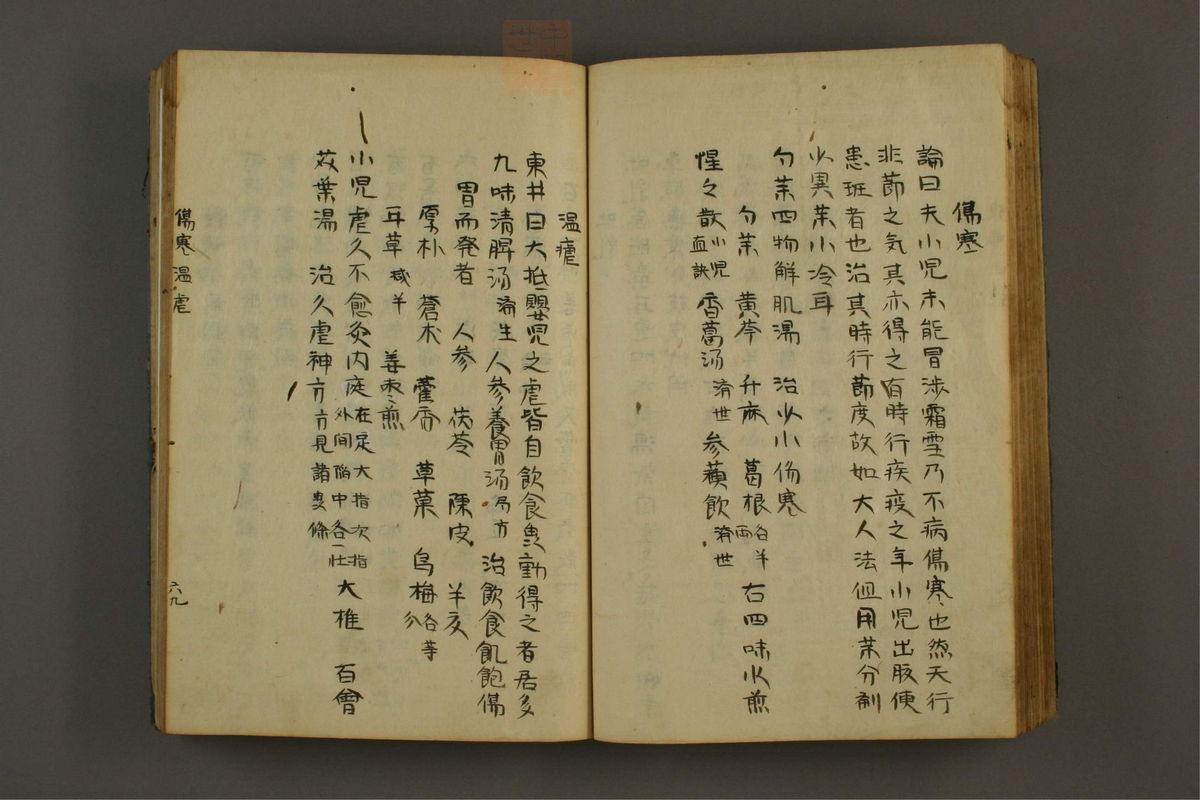 傷寒
論曰夫小児未能冒渉霜雪乃不病傷寒也然天行
非節之気其亦得之有時行疾疫之年小児出腹便
患班者也治其時行節度故如大人法但用薬分剤
少異薬小冷耳
勺薬四物解肌湯 治少小伤寒
勺薬 黄芩 升麻 葛根各半両 右四味水煎
惺々散小児直訣 香葛汤済世 参蘓飲済世
温瘧
東井曰大抵嬰児之虐皆自飲食労動得之者居多
九味清脾汤済生 人参養胃汤局方 治飲食飢飽傷
胃而発者 人参 茯苓 陳皮 半夏
厚朴 蒼朮 藿香 草菓 烏梅各等分
耳草减半 姜枣煎
小児虐久不愈灸内庭在足大指次指外间陷中各一壮 大椎 百會
治久虐神方方見諸虐條
傷寒 温虐
六九